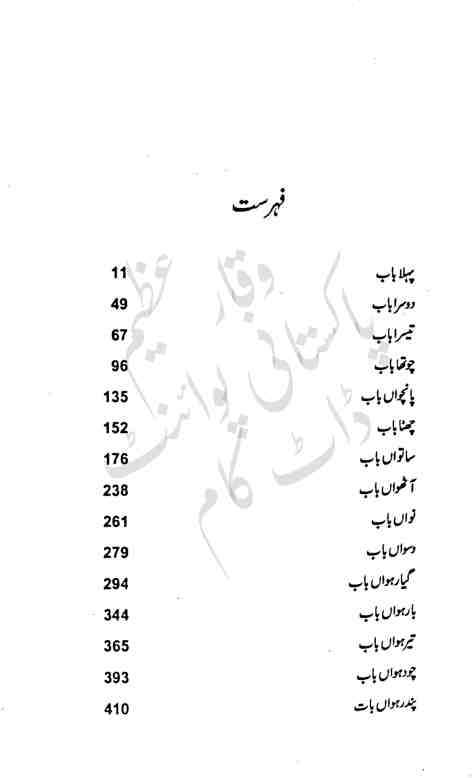 فہرست
پہلا باب 11
دوسرا باب 49
تیسرا باب 67
چوتھا باب 96
پانچواں باب 135
چھٹا باب 152
ساتواں باب 176
آٹھواں باب 238
نواں باب 261
دسواں باب 279
گیارہواں باب 294
بارہواں باب 344
تیرہواں باب 365
چودہواں باب 393
پندرہواں بات 410
وقار عظیم
پاکستانی پوائنٹ
ڈاٹ کام